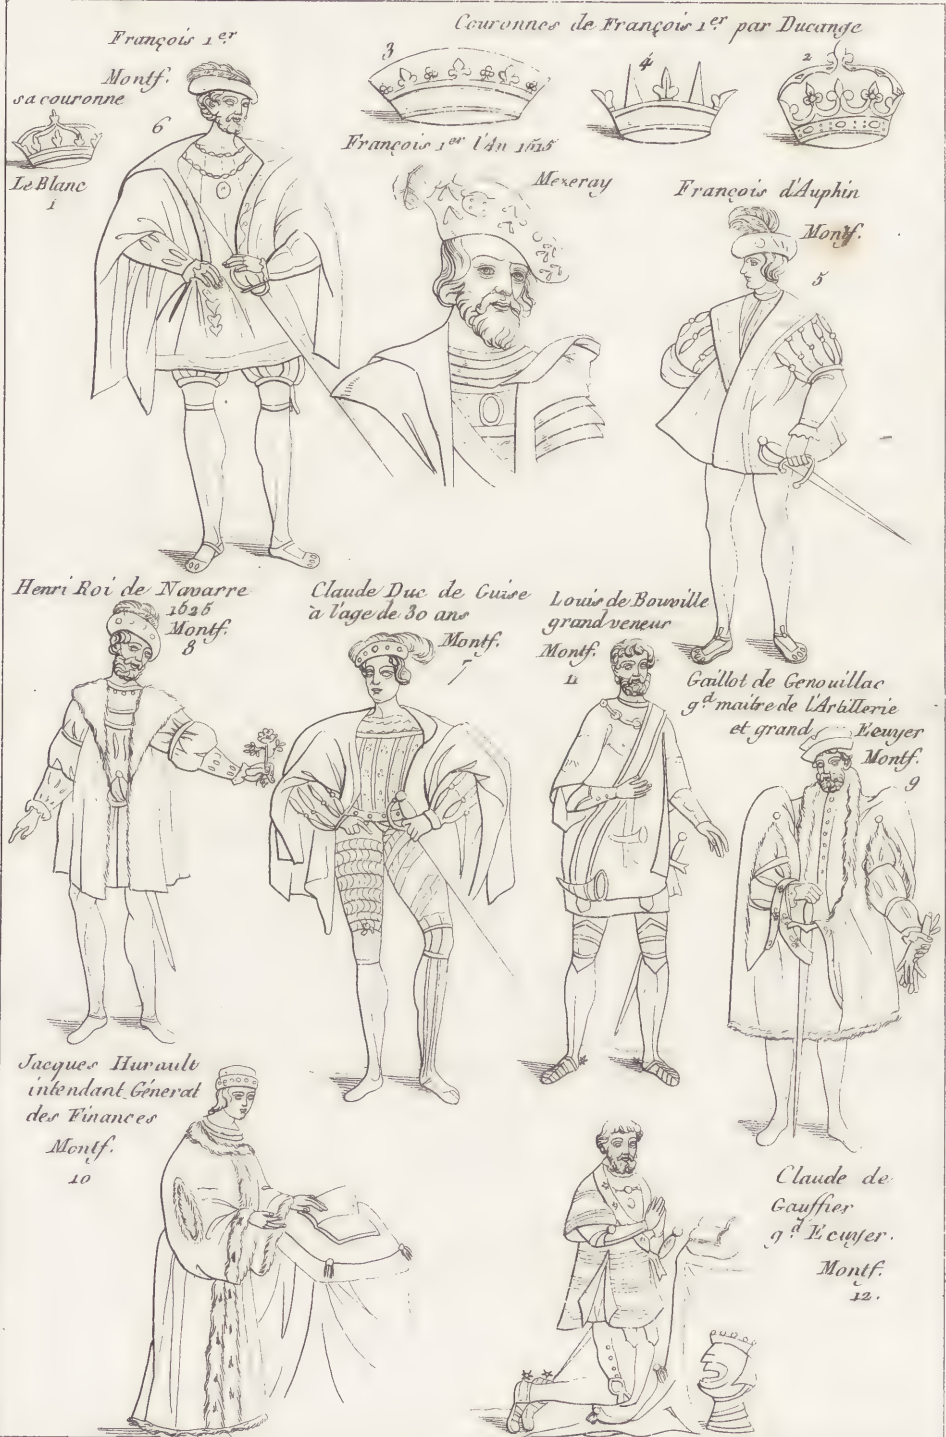 François 1.er
Montf.
sa couronne
6
Le Blanc
1
Couronnes de François 1.er par Ducange
3
4
2
François 1er l'An 1515
Mezeray
François d'Auphin
Montf.
5
Henri Roi de Navarre
1526
Montf.
8
Claude Duc de Guise
à l'age de 30 ans
Montf.
7
Louis de Bouville
grand veneur
Montf.
11
Gaillot de Genouillac
g.d maitre de l'Artillerie
et grand Ecuyer
Montf.
9
Jacques Hurault
intendant Général
des Finances
Montf.
10
Claude de
Gauffier
g.d Ecuyer.
Montf.
12.